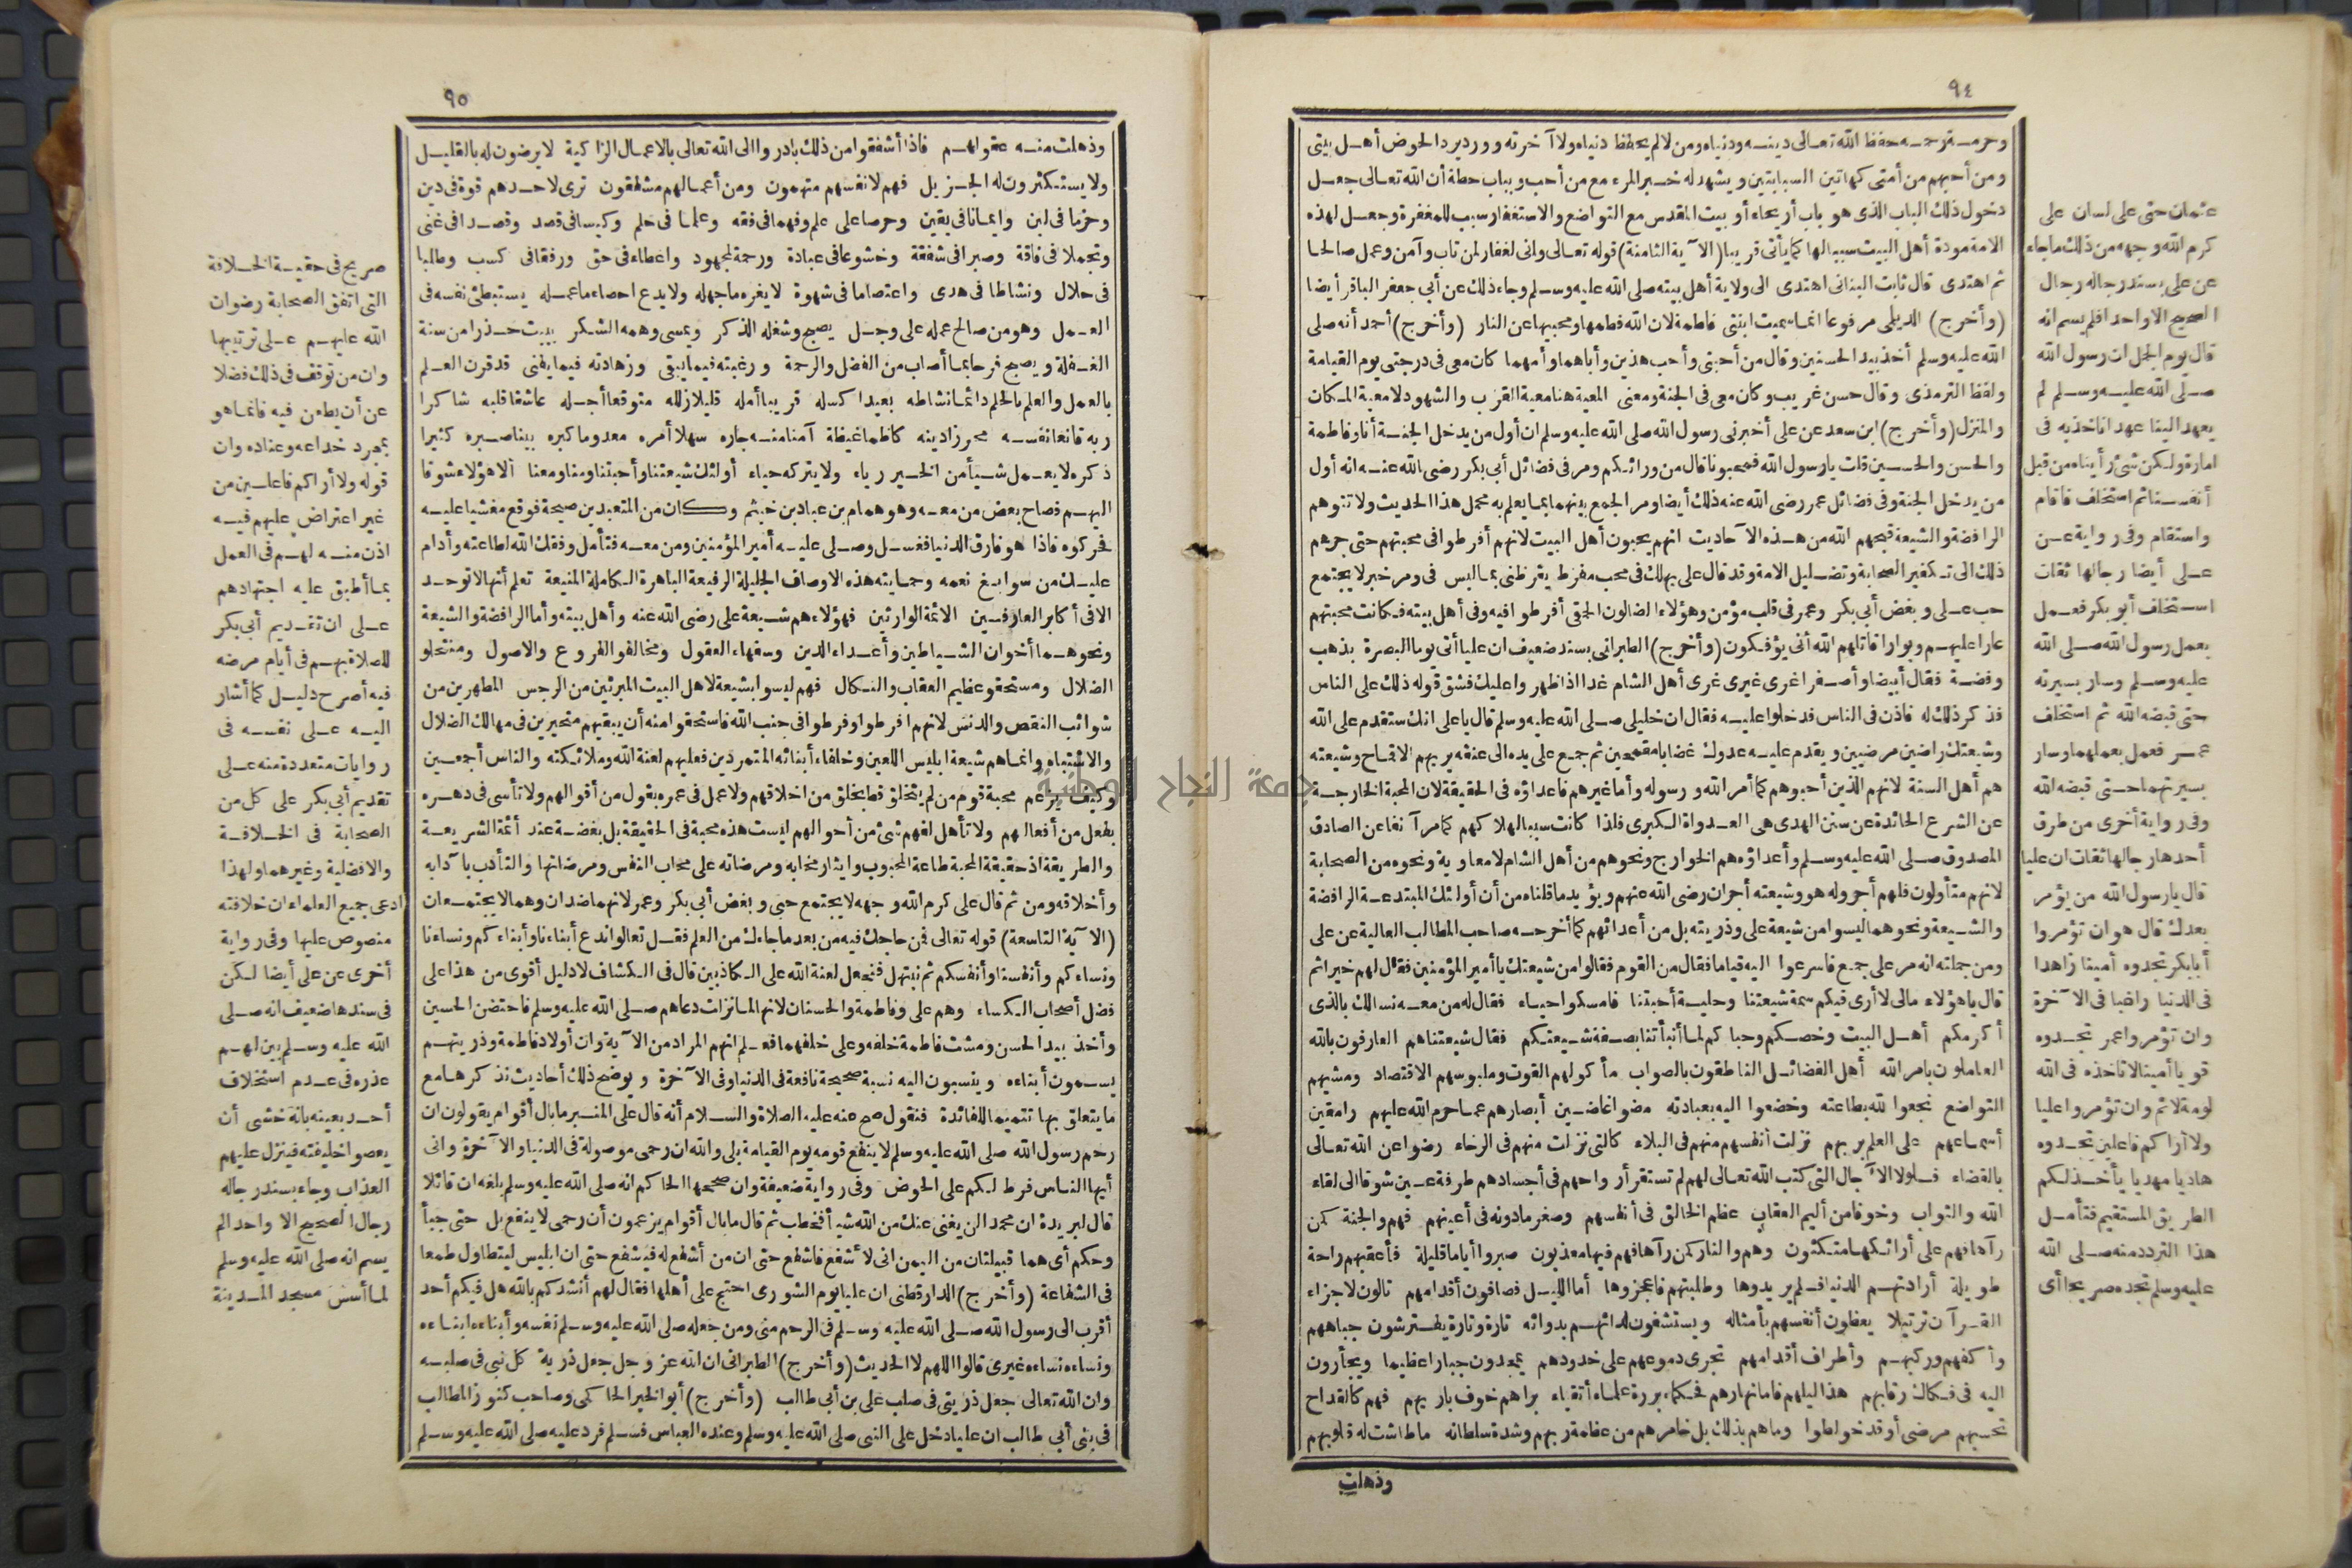 ٩٤
وحرمة رحمه حفظ الله تعالى دينه ودنياه ومن لا لم يحفظ دنياه ولا آخرته وورد يرد الحوض أهل بيتى
ومن أحبهم من أمتى كهاتين السبابتين ويشهد له خبر المرء مع من أحب وبباب حطة أن الله تعالى جعل
دخول ذلك الباب الذى هو باب أريحاء أو بيت المقدس مع التواضع والاستغفار سببا للمغفرة وجعل لهذه
الامة مودة أهل البيت سببا لها كما يأتى قريبا (الآية الثامنة) قوله تعالى وانى لغفار لمن تاب وآمن وعمل صالحا
ثم اهتدى قال ثابت البنانى اهتدى الى ولاية أهل بيته صلى الله عليه وسلم وجاء ذلك عن أبى جعفر الباقر أيضا
(وأخرج) الديلى مرفوعا انما سميت ابنتى فاطمة لان الله فطمها ومحبيها عن النار (وأخرج) أحمد أنه صلى
الله عليه وسلم أخذ بيد الحسنين وقال من أحبنى وأحب هذين وأباهما وأمهما كان معى فى درجتى يوم القيامة
ولفظ الترمذى وقال حسن غريب وكان معى فى الجنة ومعنى المعية هنا معية القرب والشهود لا معية المكان
والمنزل (وأخرج) ابن سعد عن على أخبرنى رسول الله صلى الله عليه وسلم ان أول من يدخل الجنة أنا وفاطمة
والحسن والحسين قلت يا رسول الله فمحبونا قال من ورائكم ومر فى فضائل أبى بكر رضى الله عنه انه أول
من يدخل الجنة وفى فضائل عمر رضى الله عنه ذلك أيضا ومر الجمع بينهما بما يعلم به محمل هذا الحديث ولا تتوهم
الرافضة والشيعة قبحهم الله من هذه الاحاديث انهم يحبون أهل البيت لانهم أفرطوا فى محبتهم حتى جرهم
ذلك الى تكفير الصحابة وتضليل الامة وقد قال على يهلك فى محب مفرط يقرظنى بما ليس فى ومر خبر لا يجتمع
حب على وبغض أبى بكر وعمر فى قلب مؤمن وهؤلاء الضالون الحمقى أفرطوا فيه وفى أهل بيته فكانت محبتهم
عارا عليهم وبوارا قاتلهم الله أنى يؤفكون (وأخرج) الطبرانى بسند ضعيف ان عليا أتى يوما البصرة بذهب
وفضة فقال أبيضا وأصفرا غرى غيرى غرى أهل الشام غدا اذا ظهروا عليك فشق قوله ذلك على الناس
فذكر ذلك له فاذن فى الناس فدخلوا عليه فقال ان خليلى صلى الله عليه وسلم قال يا على انك ستقدم على الله
وشيعتك راضين مرضيين ويقدم عليه عدوك غضابا مقمحين ثم جمع على يده الى عنقه يريهم الاقماح وشيعته
هم أهل السنة لانهم الذين أحبوهم كما أمر الله ورسوله وأما غيرهم فاعداؤه فى الحقيقة لان المحبة الخارجة
عن الشرع الحائدة عن سنن الهدى هى العداوة الكبرى فلذا كانت سببا لهلاكهم كما مر آنفا عن الصادق
المصدوق صلى الله عليه وسلم وأعداؤه هم الخوارج ونحوهم من أهل الشام لا معاوية ونحوه من الصحابة
لانهم متأولون فلهم أجر وله هو وشيعته أجران رضى الله عنهم ويؤيد ما قلناه من أن أولئك المبتدعة الرافضة
والشيعة ونحوهما ليسوا من شيعة على وذريته بل من أعدائهم كما أخرجه صاحب المطالب العالية عن على
ومن جملته انه مر على جمع فاسرعوا اليه قياما فقال من القوم فقالوا من شيعتك يا أمير المؤمنين فقال لهم خيرا ثم
قال يا هؤلاء مالى لا أرى فيكم سمة شيعتنا وحلية أحبتنا فامسكوا حياء فقال له من معه نسالك بالذى
أكرمكم أهل البيت وخصكم وحباكم لما أنبأتنا بصفة شيعتكم فقال شيعتنا هم العارفون بالله
العاملون بامر الله أهل الفضائل الناطقون بالصواب مأكولهم القوت وملبوسهم الاقتصاد ومشيهم
التواضع نجعوا لله بطاعته وخضعوا اليه بعبادته مضوا غاضين أبصارهم عما حرم الله عليهم رامقين
أسماعهم على العلم بربهم نزلت أنفسهم منهم فى البلاء كالتى نزلت منهم فى الرخاء رضوا عن الله تعالى
بالقضاء فلولا الآجال التى كتب الله تعالى لهم لم تستقر أرواحهم فى أجسادهم طرفة عين شوقا الى لقاء
الله والثواب وخوفا من أليم العقاب عظم الخالق فى أنفسهم وصغر ما دونه فى أعينهم فهم والجنة كمن
رآها فهم على أرائكها متكئون وهم والنار كمن رآها فهم فيها معذبون صبروا أياما قليلة فأعقبهم راحة
طويلة أرادتهم الدنيا فلم يريدوها وطلبتهم فاعجزوها أما الليل فصافون أقدامهم تالون لاجزاء
القرآن ترتيلا يعظون أنفسهم بأمثاله ويستشفون لدائهم بدوائه تارة وتارة يفترشون جباههم
وأكفهم وركبهم وأطراف أقدامهم تجرى دموعهم على خدودهم يمجدون جبارا عظيما ويجأرون
اليه فى فكاك رقابهم هذا ليلهم فاما نهارهم فحكماء بررة علماء أتقياء براهم خوف باريهم فهم كالقداح
تحسبهم مرضى أو قد خولطوا وما هم بذلك بل خامرهم من عظمة ربهم وشدة سلطانه ما طاشت له قلوبهم
وذهلت
عثمان حتى على لسان على
كرم الله وجهه من ذلك ما جاء
عن على بسند رجاله رجال
الصحيح الا واحدا فلم يسم انه
قال يوم الجمل ان رسول الله
صلى الله عليه وسلم لم
يعهد الينا عهدا ناخذ به فى
امارة ولكن شئ رأيناه من قبل
أنفسنا ثم استخلف فاقام
واستقام وفى رواية عن
على أيضا رجالها ثقات
استخلف أبو بكر فعمل
بعمل رسول الله صلى الله
عليه وسلم وسار بسيرته
حتى قبضه الله ثم استخلف
عمر فعمل بعملهما وسار
بسيرتهما حتى قبضه الله
وفى رواية أخرى من طرق
أحدها رجالها ثقات ان عليا
قال يا رسول الله من يؤمر
بعدك قال هو ان تؤمروا
أبا بكر تجدوه أمينا زاهدا
فى الدنيا راغبا فى الآخرة
وان تؤمروا عمر تجدوه
قويا أمينا لا تاخذه فى الله
لومة لائم وان تؤمروا عليا
ولا أراكم فاعلين تجدوه
هاديا مهديا يأخذ لكم
الطريق المستقيم فتأمل
هذا التردد منه صلى الله
عليه وسلم تجده صريحا أى
٩٥
وذهلت منه عقولهم فاذا أشفقوا من ذلك بادروا الى الله تعالى بالاعمال الزاكية لا يرضون له بالقليل
ولا يستكثرون له الجزيل فهم لانفسهم متهمون ومن أعمالهم مشفقون ترى لاحدهم قوة فى دين
وحزما فى لين وايمانا فى يقين وحرصا على علم وفهما فى فقه وعلما فى حلم وكيسا فى قصد وقصدا فى غنى
وتجملا فى فاقة وصبرا فى شفقة وخشوعا فى عبادة ورحمة لمجهود واعطاء فى حق ورفقا فى كسب وطلبا
فى حلال ونشاطا فى هدى واعتصاما فى شهوة لا يغره ما جهله ولا يدع احصاء ما عمله يستبطئ نفسه فى
العمل وهو من صالح عمله على وجل يصبح وشغله الذكر ويمسى وهمه الشكر يبيت حذرا من سنة
الغفلة ويصبح فرحا بما أصاب من الفضل والرحمة ورغبته فيما يبقى وزهادته فيما يفنى قد قرن العلم
بالعمل والعلم بالحلم دائما نشاطه بعيدا كسله قريبا أمله قليلا زلله متوقعا أجله عاشقا قلبه شاكرا
ربه قانعا نفسه محرزا دينه كاظما غيظه آمنا منه جاره سهلا أمره معدوما كبره بينا صبره كثيرا
ذكره لا يعمل شيأ من الخير رياء ولا يتركه حياء أولئك شيعتنا وأحبتنا ومنا ومعنا ألا هؤلاء شوقا
اليهم فصاح بعض من معه وهو همام بن عباد بن خيثم وكان من المتعبدين صيحة فوقع مغشيا عليه
فحركوه فاذا هو فارق الدنيا فغسل وصلى عليه أمير المؤمنين ومن معه فتأمل وفقك الله لطاعته وأدام
عليك من سوابغ نعمه وحمايته هذه الاوصاف الجليلة الرفيعة الباهرة الكاملة المنيعة تعلم أنها لا توجد
الا فى أكابر العارفين الائمة الوارثين فهؤلاء هم شيعة على رضى الله عنه وأهل بيته وأما الرافضة والشيعة
ونحوهما أخوان الشياطين وأعداء الدين وسفهاء العقول ومخالفو الفروع والاصول ومنتحلو
الضلال ومستحقو عظيم العقاب والنكال فهم ليسوا بشيعة لاهل البيت المبرئين من الرجس المطهرين من
شوائب النقص والدنس لانهم افرطوا وفرطوا فى جنب الله فاستحقوا منه أن يبقيهم متحيرين فى مهالك الضلال
والاشتباه وانما هم شيعة ابليس اللعين وخلفاء أبنائه المتمردين فعليهم لعنة الله وملائكته والناس أجمعين
وكيف يزعم محبة قوم من لم يتخلق قط بخلق من اخلاقهم ولا عمل فى عمره بقول من أقوالهم ولا تأسى فى دهره
بفعل من أفعالهم ولا تأهل لفهم شئ من أحوالهم ليست هذه محبة فى الحقيقة بل بغضة عند أئمة الشريعة
والطريقة اذ حقيقة المحبة طاعة المحبوب وايثار محابه ومرضاته على محاب النفس ومرضاتها والتأدب بآدابه
وأخلاقه ومن ثم قال على كرم الله وجهه لا يجتمع حبى وبغض أبى بكر وعمر لانهما ضدان وهما لا يجتمعان
(الآية التاسعة) قوله تعالى فمن حاجك فيه من بعد ما جاءك من العلم فقل تعالوا ندع أبناءنا وأبناءكم ونساءنا
ونساءكم وأنفسنا وأنفسكم ثم نبتهل فنجعل لعنة الله على الكاذبين قال فى الكشاف لا دليل أقوى من هذا على
فضل أصحاب الكساء وهم على وفاطمة والحسنان لانها لما نزلت دعاهم صلى الله عليه وسلم فاحتضن الحسين
وأخذ بيد الحسن ومشت فاطمة خلفه وعلى خلفهما فعلم انهم المراد من الآية وان أولاد فاطمة وذريتهم
يسمون أبناءه وينسبون اليه نسبة صحيحة نافعة فى الدنيا وفى الآخرة ويوضح ذلك أحاديث نذكرها مع
ما يتعلق بها تتميما للفائدة فنقول صح عنه عليه الصلاة والسلام أنه قال على المنبر ما بال أقوام يقولون ان
رحم رسول الله صلى الله عليه وسلم لا ينفع قومه يوم القيامة بلى والله ان رحمى موصولة فى الدنيا والآخرة وانى
أيها الناس فرط لكم على الحوض وفى رواية ضعيفة وان صححها الحاكم انه صلى الله عليه وسلم بلغه ان قائلا
قال لبريدة ان محمدا لن يغنى عنك من الله شيأ فخطب ثم قال ما بال أقوام يزعمون أن رحمى لا ينفع بل حتى جبأ
وحكم أى هما قبيلتان من اليمن انى لأشفع فاشفع حتى ان من أشفع له فيشفع حتى ان ابليس ليتطاول طمعا
فى الشفاعة (وأخرج) الدارقطنى ان عليا يوم الشورى احتج على أهلها فقال لهم أنشدكم بالله هل فيكم أحد
أقرب الى رسول الله صلى الله عليه وسلم فى الرحم منى ومن جعله صلى الله عليه وسلم نفسه وأبناءه ابناءه
ونساءه نساءه غيرى قالوا اللهم لا الحديث (وأخرج) الطبرانى ان الله عز وجل جعل ذرية كل نبى فى صلبه
وان الله تعالى جعل ذريتى فى صلب على بن أبى طالب (وأخرج) أبو الخير الحاكمى وصاحب كنوز المطالب
فى بنى أبى طالب ان عليا دخل على النبى صلى الله عليه وسلم وعنده العباس فسلم فرد عليه صلى الله عليه وسلم
صريح فى حقية الخلافة
التى اتفق الصحابة رضوان
الله عليهم على ترتيبها
وان من توقف فى ذلك فضلا
عن أن يطعن فيه فانما هو
بمجرد خداعه وعناده وان
قوله ولا أراكم فاعلين من
غير اعتراض عليهم فيه
اذن منه لهم فى العمل
بما أطبق عليه اجتهادهم
على ان تقديم أبى بكر
للصلاة بهم فى أيام مرضه
فيه أصرح دليل كما أشار
اليه على نفسه فى
روايات متعددة منه على
تقديم أبى بكر على كل من
الصحابة فى الخلافة
والافضلية وغيرهما ولهذا
ادعى جميع العلماء ان خلافته
منصوص عليها وفى رواية
أخرى عن على أيضا لكن
فى سندها ضعيف انه صلى
الله عليه وسلم بين لهم
عذره فى عدم استخلاف
أحد بعينه بانه خشى أن
يعصوا خليفته فينزل عليهم
العذاب وجاء بسند رجاله
رجال الصحيح الا واحدا لم
يسم انه صلى الله عليه وسلم
لما أسس مسجد المدينة
جامعة النجاح الوطنية